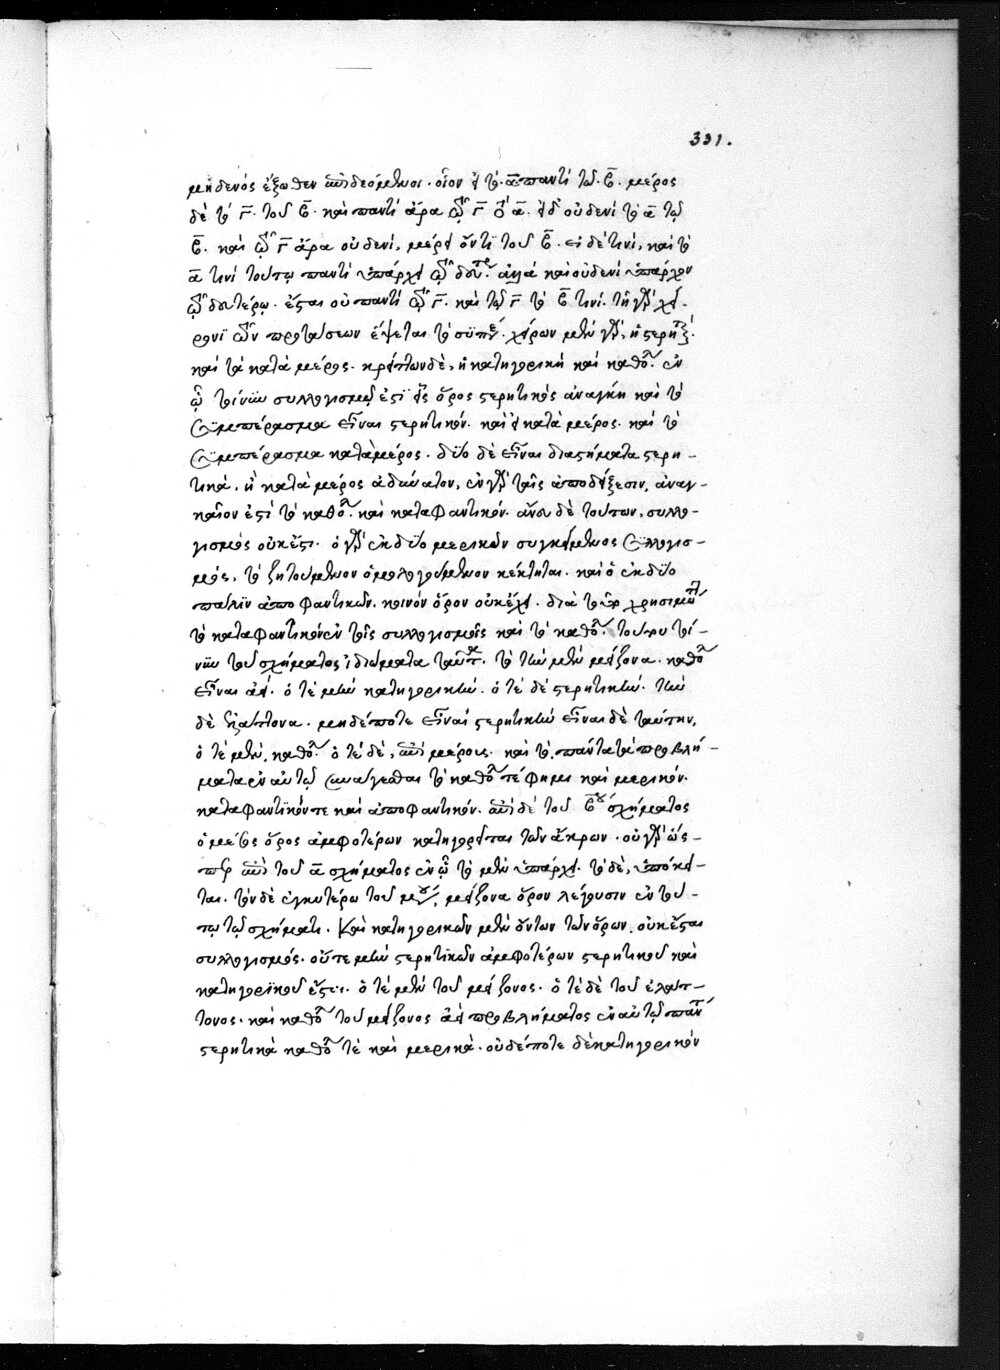 331.
μηδενὸς ἔξωθεν ἐπιδεόμενοι. οἷον εἰ τὸ. α̅. παντὶ τῷ. β̅. μέρος
δὲ τὸ γ̅. τοῦ β̅. καὶ παντὶ ἄρα τῷ γ̅ τὸ α̅. εἰ δ' οὐδενὶ τὸ α̅ τῷ
β̅. καὶ τῷ γ̅ ἄρα οὐδενί, μέρει ὄντι τοῦ β̅. εἰ δὲ τινί, καὶ τὸ
α̅ τινὶ τούτῳ παντὶ ὑπάρχει τῷ δευτέρῳ. ἀλλὰ καὶ οὐδενὶ ὑπάρχον
τῷ δευτέρῳ. ἔσται οὐ παντὶ τῷ γ̅. καὶ τῷ γ̅ τὸ β̅ τινί. τῇ γὰρ χεί-
ρονι τῶν προτάσεων ἕψεται τὸ συμπέρασμα. χείρων μὲν γὰρ, ἡ στερητικὴ.
καὶ τὰ κατὰ μέρος. κρείττων δὲ, ἡ κατηγορικὴ καὶ καθόλου. ἐν
ᾧ τοίνυν συλλογισμῷ ἐστὶ εἷς ὅρος στερητικὸς ἀνάγκη καὶ τὸ
συμπέρασμα εἶναι στερητικόν. καὶ εἰ κατὰ μέρος. καὶ τὸ
συμπέρασμα κατὰ μέρος. δύο δὲ εἶναι διαστήματα στερη-
τικὰ, ἢ κατὰ μέρος ἀδύνατον, ἐν γὰρ ταῖς ἀποδείξεσιν, ἀναγ-
καῖον ἐστὶ τὸ καθόλου. καὶ καταφαντικόν. ἄνευ δὲ τούτων, συλλο-
γισμὸς οὐκ ἔστι. ὁ γὰρ ἐκ δύο μερικῶν συγκείμενος συλλογισ-
μός, τὸ ζητούμενον ὁμολογούμενον κέκτηται. καὶ ὁ ἐκ δύο
πάλιν ἀποφαντικῶν. κοινὸν ὅρον οὐκ ἔχει. διὰ τοῦτο χρησιμώτατον
τὸ καταφαντικὸν ἐν τοῖς συλλογισμοῖς καὶ τὸ καθόλου. τούτου τοί-
νυν τοῦ σχήματος ἰδιώματα ταῦτα. τὸ τὴν μὲν μείζονα. καθόλου
εἶναι ἀεί. ὁτὲ μὲν κατηγορικὴν. ὁτὲ δὲ στερητικὴν. τὴν
δὲ ἐλάττονα. μηδέποτε εἶναι στερητικὴν εἶναι δὲ ταύτην,
ὁτὲ μὲν, καθόλου. ὁτὲ δὲ, ἐπὶ μέρους. καὶ τὸ πάντα τὰ προβλή-
ματα ἐν αὐτῷ συνάγεσθαι τὸ καθόλου τέ φημι καὶ μερικόν.
καταφαντικόν τε καὶ ἀποφαντικόν. ἐπὶ δὲ τοῦ β̅ου σχήματος
ὁ μέσος ὅρος ἀμφοτέρων κατηγορεῖται τῶν ἄκρων. οὐ γὰρ ὥς-
περ ἐπὶ τοῦ α̅ σχήματος ἐν ᾧ τὸ μὲν ὑπάρχει. τὸ δὲ, ὑπόκει-
ται. τὸν δὲ ἐγγυτέρω τοῦ μέσου, μείζονα ὅρον λέγουσιν ἐν τού-
τῳ τῷ σχήματι. Καὶ κατηγορικῶν μὲν ὄντων τῶν ὅρων, οὐκ ἔσται
συλλογισμός. οὔτε μὴν στερητικῶν ἀμφοτέρων στερητικοῦ καὶ
κατηγορικοῦ ἔσται. ὁτὲ μὲν τοῦ μείζονος. ὁτὲ δὲ τοῦ ἐλάττ-
τονος. καὶ καθόλου τοῦ μείζονος ἀεὶ προβλήματος ἐν αὐτῷ πάντα
στερητικὰ καθόλου τὲ καὶ μερικά. οὐδέποτε δὲ κατηγορικόν